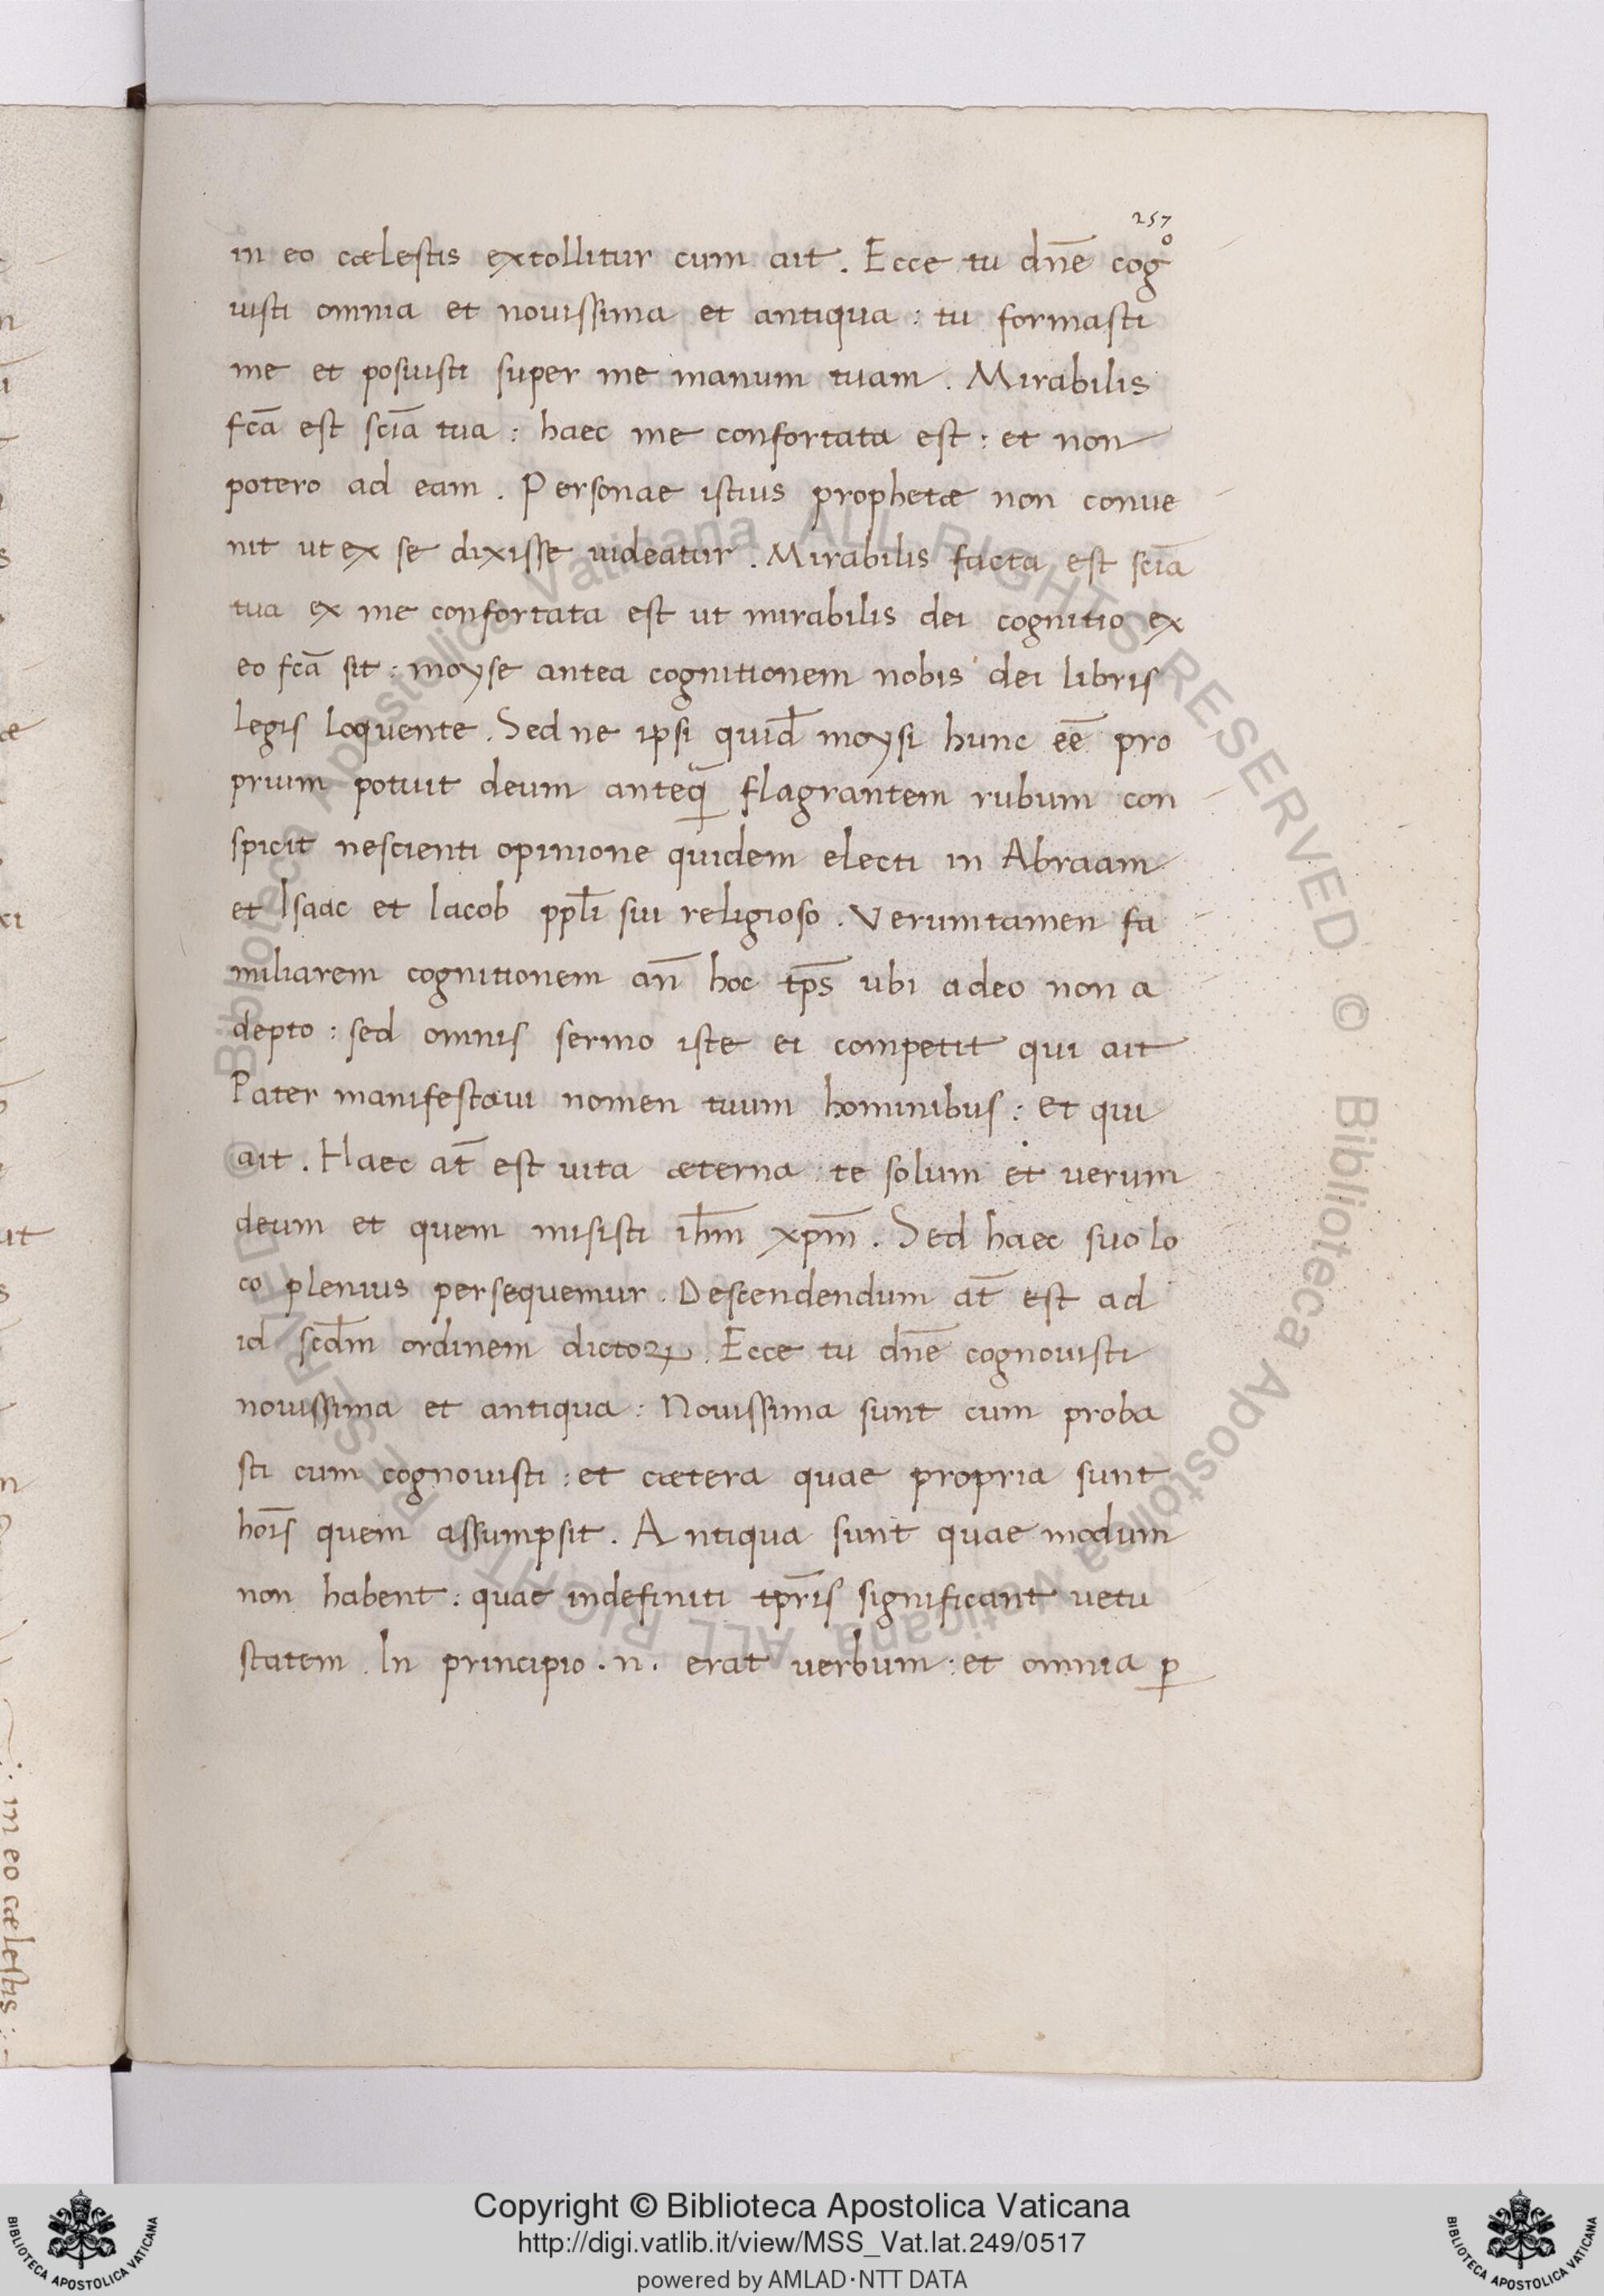 257
in eo cælestis extollitur cum ait. Ecce tu dn̄e cogͦ
uisti omnia et nouissima et antiqua: tu formasti
me et posuisti super me manum tuam. Mirabilis
fcā est sciā tua: haec me confortata est: et non
potero ad eam. Personae istius prophetæ non conue
nit ut ex se dixisse uideatur. Mirabilis facta est sciā
tua ex me confortata est ut mirabilis dei cognitio ex
eo fcā sit: moyse antea cognitionem nobis dei libris
legis loquente. Sed ne ipsi quid̄ moysi hunc eē pro
prium potuit deum anteq̄ flagrantem rubum con
spicit nescienti opinione quidem electi in Abraam
et Isaac et Iacob ppl̄i sui religioso. Verumtamen fa
miliarem cognitionem an̄ hoc tp̄s ubi adeo non a
depto: sed omnis sermo iste ei competit qui ait
Pater manifestaui nomen tuum hominibus: et qui
ait. Haec at̄ est uita æterna te solum et uerum
deum et quem misisti ih̄m xp̄m. Sed haec suo lo
co plenius persequemur. Descendendum at̄ est ad
id scd̄m ordinem dictoꝝ. Ecce tu dn̄e cognouisti
nouissima et antiqua: Nouissima sunt cum proba
sti cum cognouisti: et cætera quae propria sunt
hoīs quem assumpsit. Antiqua sunt quae modum
non habent: quae indefiniti tp̄ris significant uetu
statem. In principio .n. erat uerbum: et omnia ꝑ
in eo cælestis:
Biblioteca Apostolica Vaticana ALL RIGHTS RESERVED ©
Biblioteca Apostolica Vaticana ALL RIGHTS RESERVED ©
Copyright © Biblioteca Apostolica Vaticana
http://digi.vatlib.it/view/MSS_Vat.lat.249/0517
powered by AMLAD·NTT DATA
BIBLIOTECA APOSTOLICA VATICANA
BIBLIOTECA APOSTOLICA VATICANA